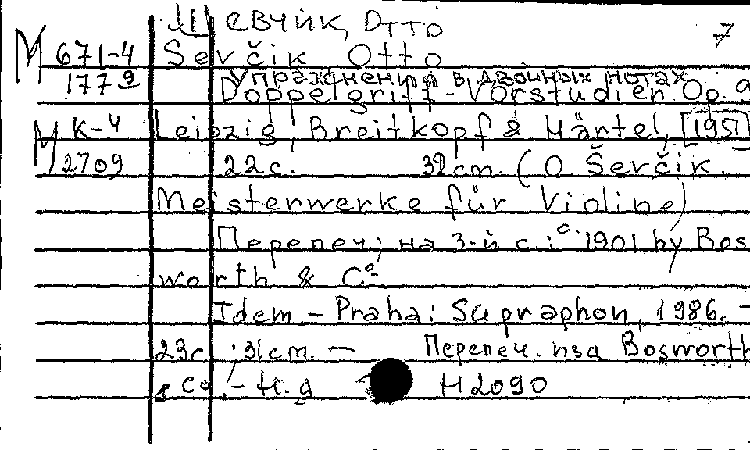 Шевчик, Отто
7
М 671-4 Ševčik Otto
1779 Упражнения в двойных нотах
Doppelgriff-Vorstudien. Op. 9
М К-4 Leipzig, Breitkopf & Härtel, [1951]
2709 22 с. 32 cm. (O. Ševčik
Meisterwerke für Violine)
Перепеч; на 3-й с.: c. 1901 by Bos
worth & Co
Idem - Praha: Supraphon, 1986. -
23с.; 31cm. — Перепеч. изд Bosworth
& Co, - H. a H 2090